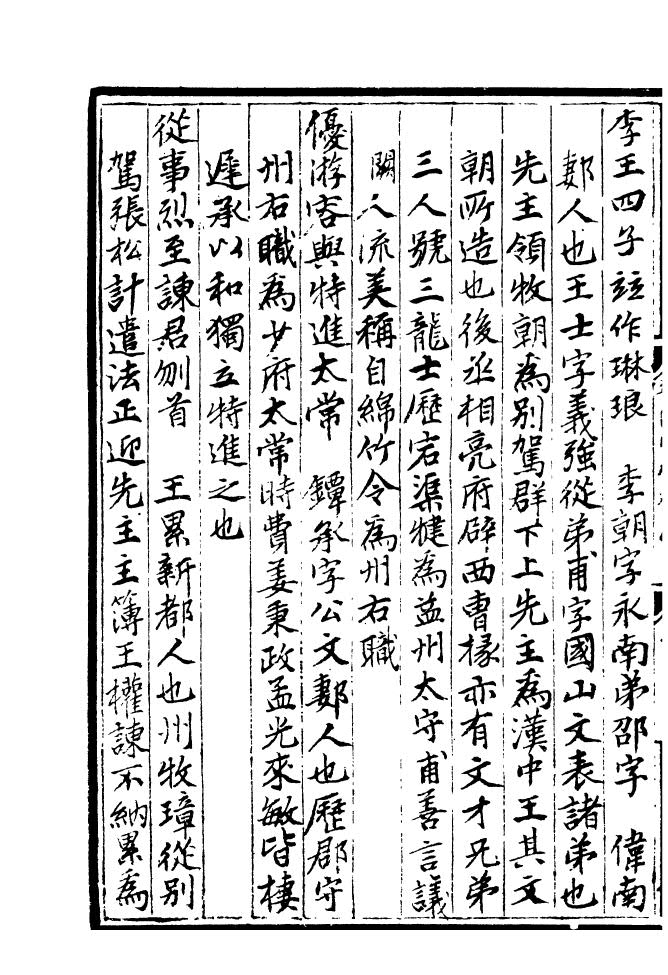 李王四子竝作琳琅　李朝字永南弟邵字　偉南
郪人也王士字義強從弟甫字國山文表諸弟也
先主領牧朝為別駕群下上先主為漢中王其文
朝所造也後丞相亮府辟西曹掾亦有文才兄弟
三人號三龍士歷宕渠犍為益州太守甫善言議
闕人流美稱自綿竹令為州右職
優游容與特進太常　鐔承字公文郪人也歷郡守
州右職為少府太常時費姜秉政孟光來敏皆棲
遲承以和獨立特進之也
從事烈至諫君刎首　王累新都人也州牧璋從別
駕張松計遣法正迎先主主簿王權諫不納累為